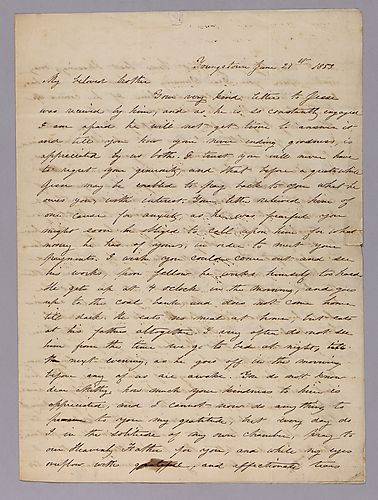 Youngstown June 28th 1853
My beloved Mother
Your very kind letter to Jesse
was received by him, and as he is so constantly engaged
I am afraid he will not get time to answer it
and tell you how your never ending goodness is
appreciated by us both. I trust you will never have
to regret your generosity, and that before a great while
Jesse may be enabled to pay back to you what he
owes you, with interest. Your letter relieved him of
one cause for anxiety, as he was fearful you
might soon be obliged to call upon him for what
money he has of yours, in order to meet your
payments. I wish you could come out and see
his works, poor fellow he works himself to hard
He gets up at 4 oclock in the morning and goes
up to the coal bank and does not come home
till dark. He eats no meal at home, but eats
at his fathers altogether. I very often do not see
him from the time we go to bed at night, till
the next evening, as he goes off in the morning
before any of us are awake. You do not know
dear Mother, how much your kindness to him is
appreciated, and I cannot now do anything to
to you my gratitude, but every day do
I in the solitude of my own chamber, pray to
our Heavenly Father for you, and while my eyes
overflow with grateful, and affectionate tears